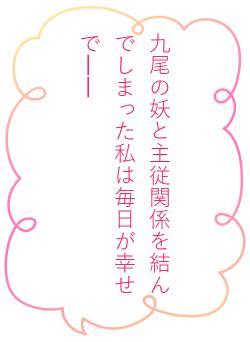 九尾の妖と主従関係を結ん
でしまった私は毎日が幸せ
で――